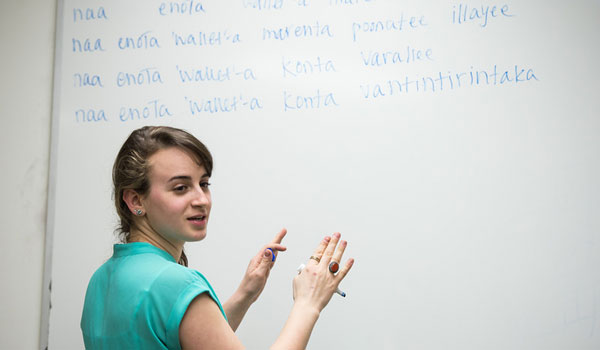 naa enota 'wallet'-a
naa enota 'wallet'-a marenta poonatee illayee
naa enota 'wallet'-a konta varaliee
naa enota 'wallet'-a konta vantintirintaka